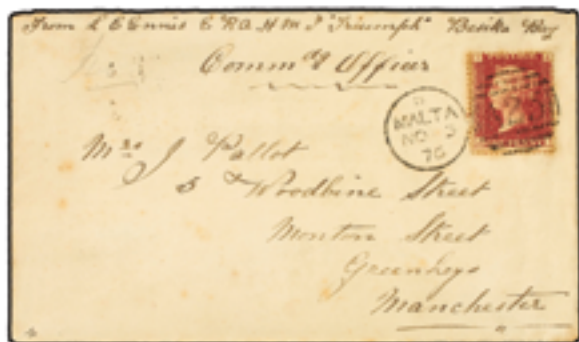 From L C Ennis C RA H M S "Triumph" Besika Bay
Comm^dg Officer
MALTA
NO 3
76
M^rs J Pallot
5 Woodbine Street
Monton Street
Greenheys
Manchester